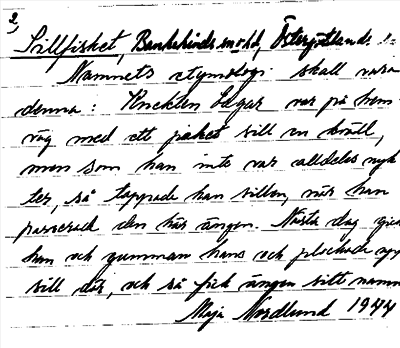 2,
Sillfisket, Bankekinds sn o hd, Östergötlands l.
Namnets etymologi skall vara
denna: Knekten Edgar var på hem-
väg med ett paket sill en kväll,
men som han inte var alldeles nyk-
ter, så tappade han sillen, när han
passerade den här ängen. Nästa dag gick
han och gumman hans och plockade upp
sill där, och så fick ängen sitt namn
Maja Nordlund 1944